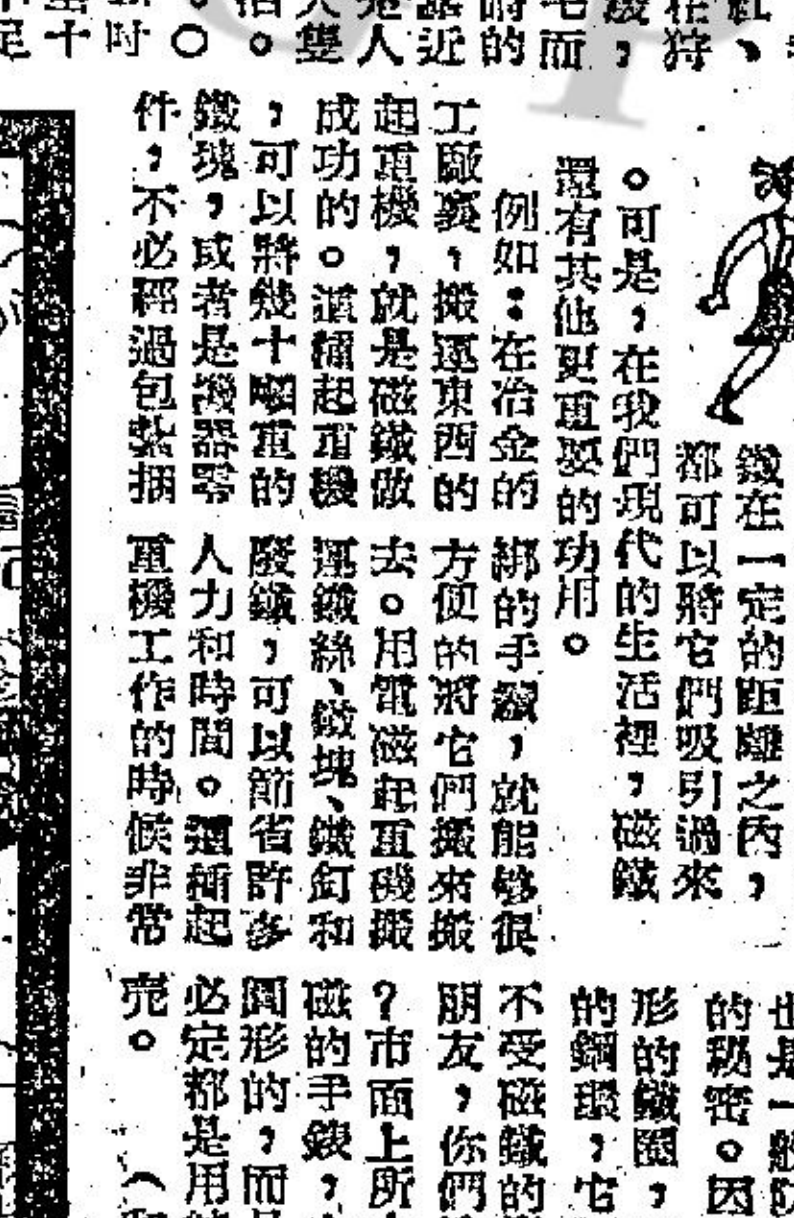 紅、
狩
，
而
的
近
人
隻
。
。○
時
十
足
鐵在一定的距離之內，
都可以將它們吸引過來
。可是，在我們現代的生活裡，磁鐵
還有其他更重要的功用。
例如：在冶金的
工廠裏，搬運東西的
起重機，就是磁鐵做
成功的。這種起重機
，可以將幾十噸重的
鐵塊，或者是機器零
件，不必經過包紮捆
綁的手續，就能夠很
方便的將它們搬來搬
去。用電磁起重機搬
運鐵絲、鐵塊、鐵釘和
廢鐵，可以節省許多
人力和時間。這種起
重機工作的時候非常
也是一般
的秘密。因
形的鐵圈，
的鋼環，它
不受磁鐵的
朋友，你們
？市面上所
磁的手錶，
圓形的，而
必定都是用
売。